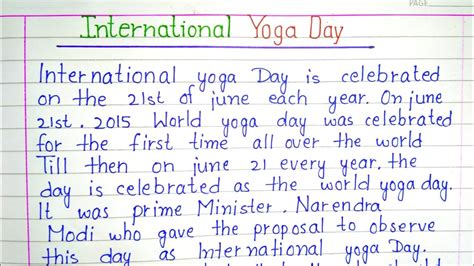 PAGE
International Yoga Day
International yoga Day is celebrated
on the 21st of june each year. On june
21st. 2015 World yoga day was celebrated
for the first time all over the world
Till then on june 21 every year. the
day is celebrated as the world yoga day.
It was prime Minister. Narendra
Modi who gave the proposal to observe
this day as International yoga Day.